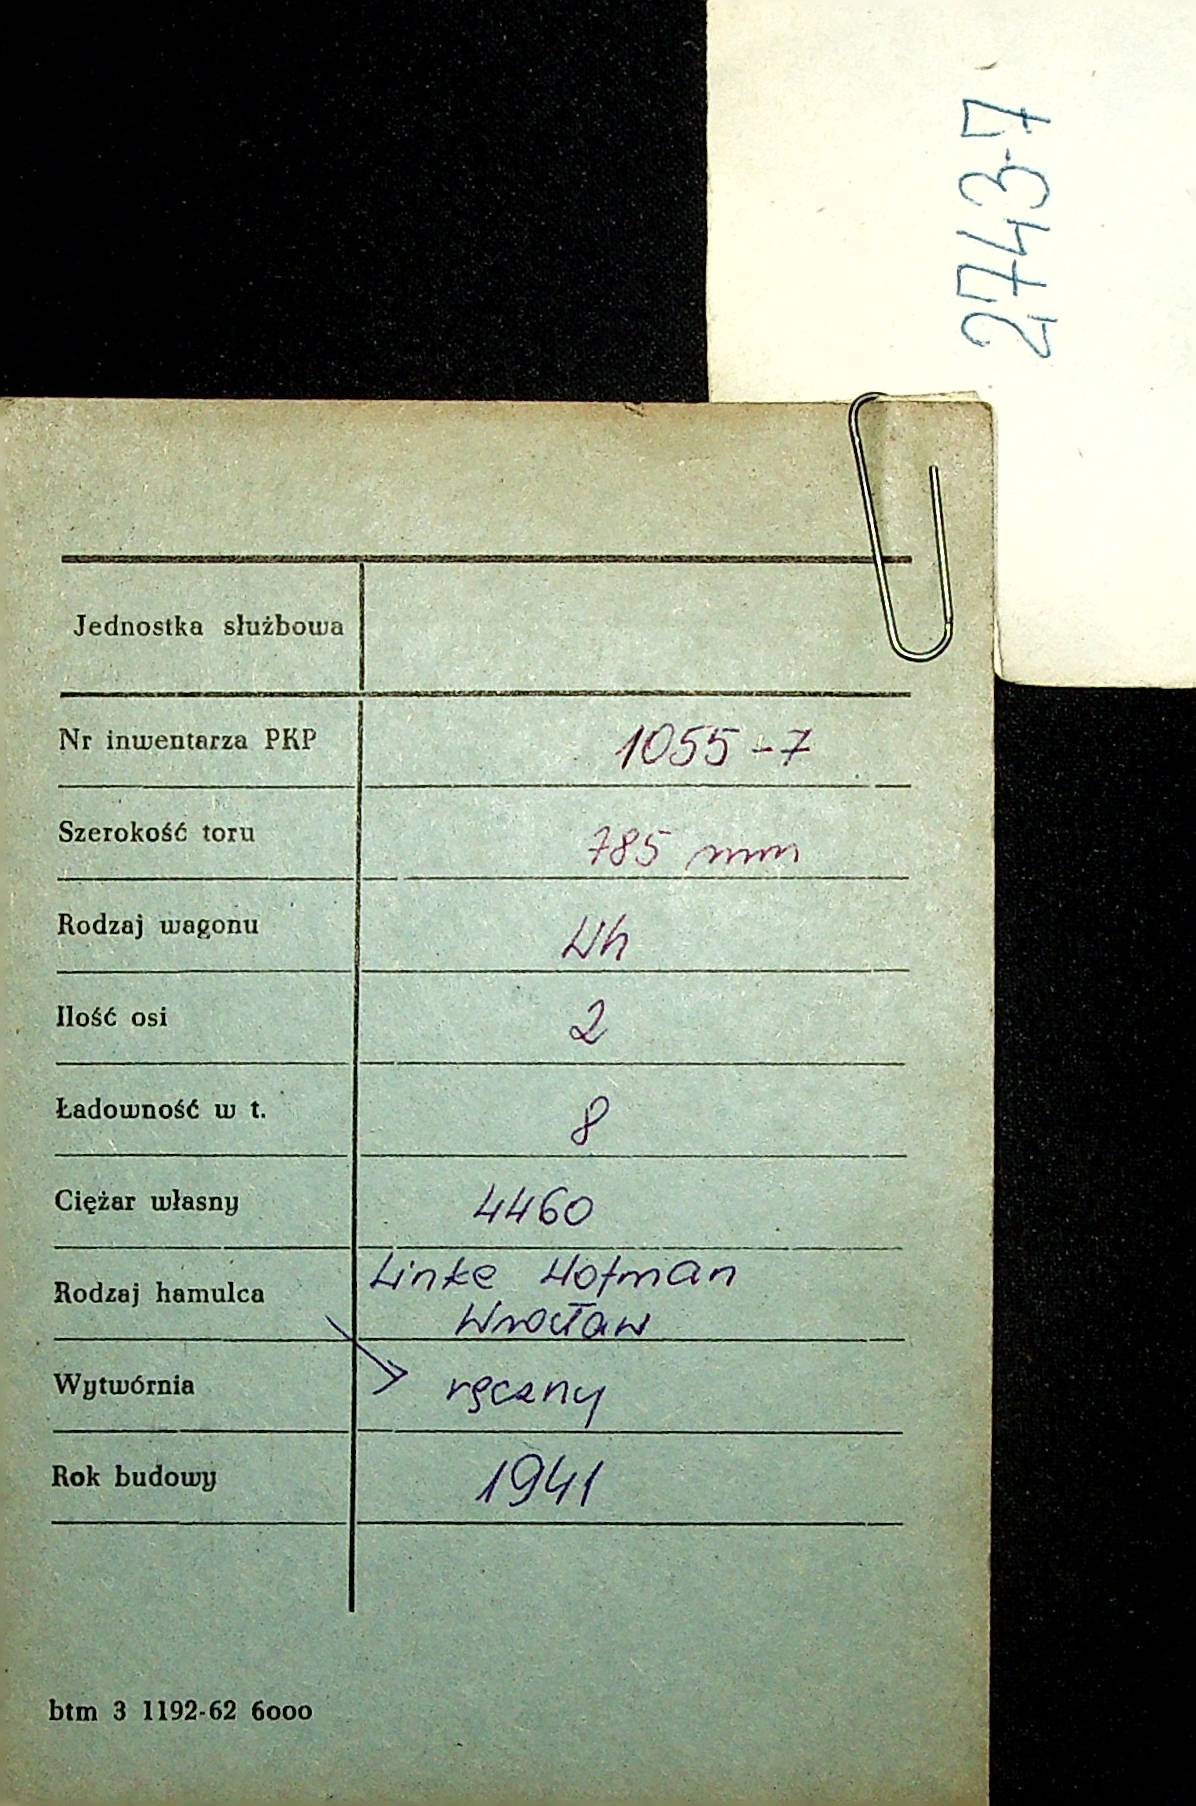 2743-7
Jednostka służbowa
Nr inwentarza PKP 1055-7
Szerokość toru 785 mm
Rodzaj wagonu Wh
Ilość osi 2
Ładowność w t. 8
Ciężar własny 4460
Rodzaj hamulca Linke Hofman
Wrocław
Wytwórnia ręczny
Rok budowy 1941
btm 3 1192-62 6000